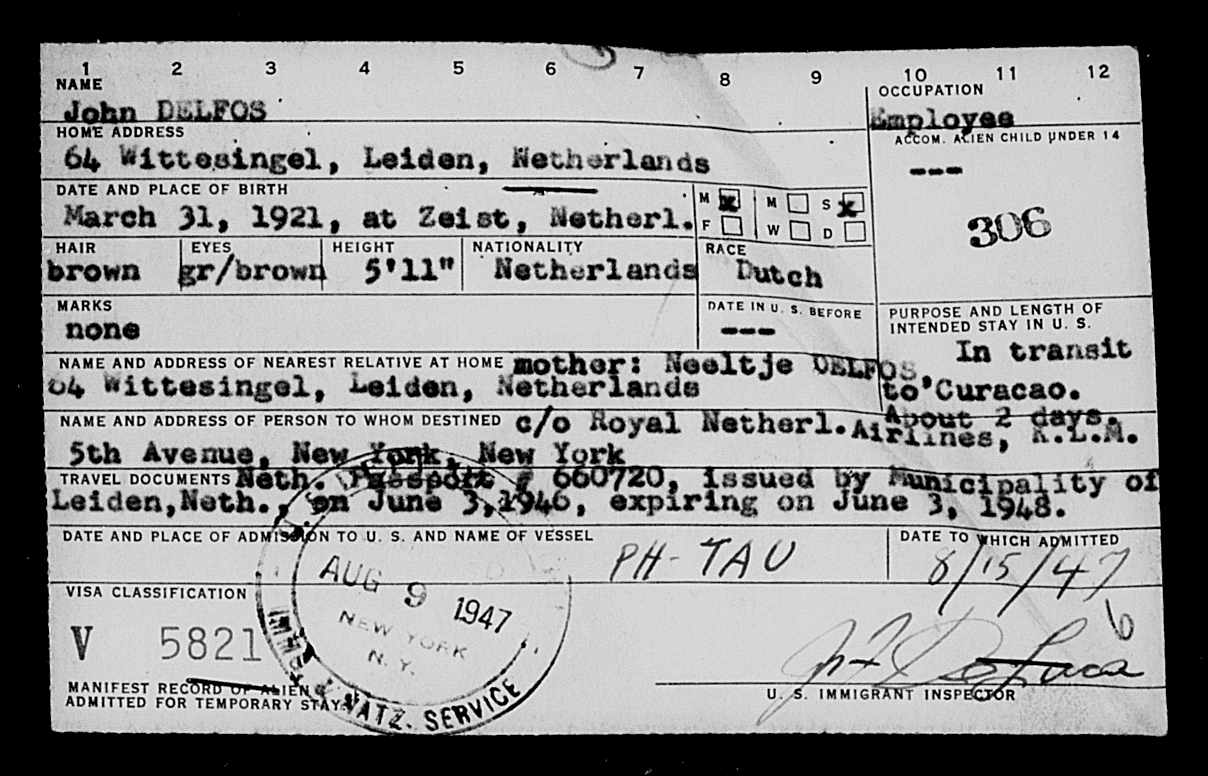 1 2 3 4 5 6 7 8 9 10 11 12
NAME
John DELFOS
OCCUPATION
Employee
HOME ADDRESS
64 Wittesingel, Leiden, Netherlands
ACCOM. ALIEN CHILD UNDER 14
---
DATE AND PLACE OF BIRTH
March 31, 1921, at Zeist, Netherl.
M x M S x
F W D
306
HAIR EYES HEIGHT NATIONALITY RACE
brown gr/brown 5'11" Netherlands Dutch
MARKS
none
DATE IN U. S. BEFORE
---
PURPOSE AND LENGTH OF
INTENDED STAY IN U. S.
In transit
to Curacao.
About 2 days.
NAME AND ADDRESS OF NEAREST RELATIVE AT HOME mother: Neeltje DELFOS,
64 Wittesingel, Leiden, Netherlands
NAME AND ADDRESS OF PERSON TO WHOM DESTINED c/o Royal Netherl. Airlines, K.L.M.
5th Avenue, New York, New York
TRAVEL DOCUMENTS Neth. Passport # 660720, issued by Municipality of
Leiden,Neth., on June 3,1946, expiring on June 3, 1948.
DATE AND PLACE OF ADMISSION TO U. S. AND NAME OF VESSEL
PH-TAU
DATE TO WHICH ADMITTED
8/15/47
AUG 9 1947
NEW YORK
N. Y.
IMM. & NATZ. SERVICE
VISA CLASSIFICATION
V 5821
6
U. S. IMMIGRANT INSPECTOR
MANIFEST RECORD OF ALIENS
ADMITTED FOR TEMPORARY STAY